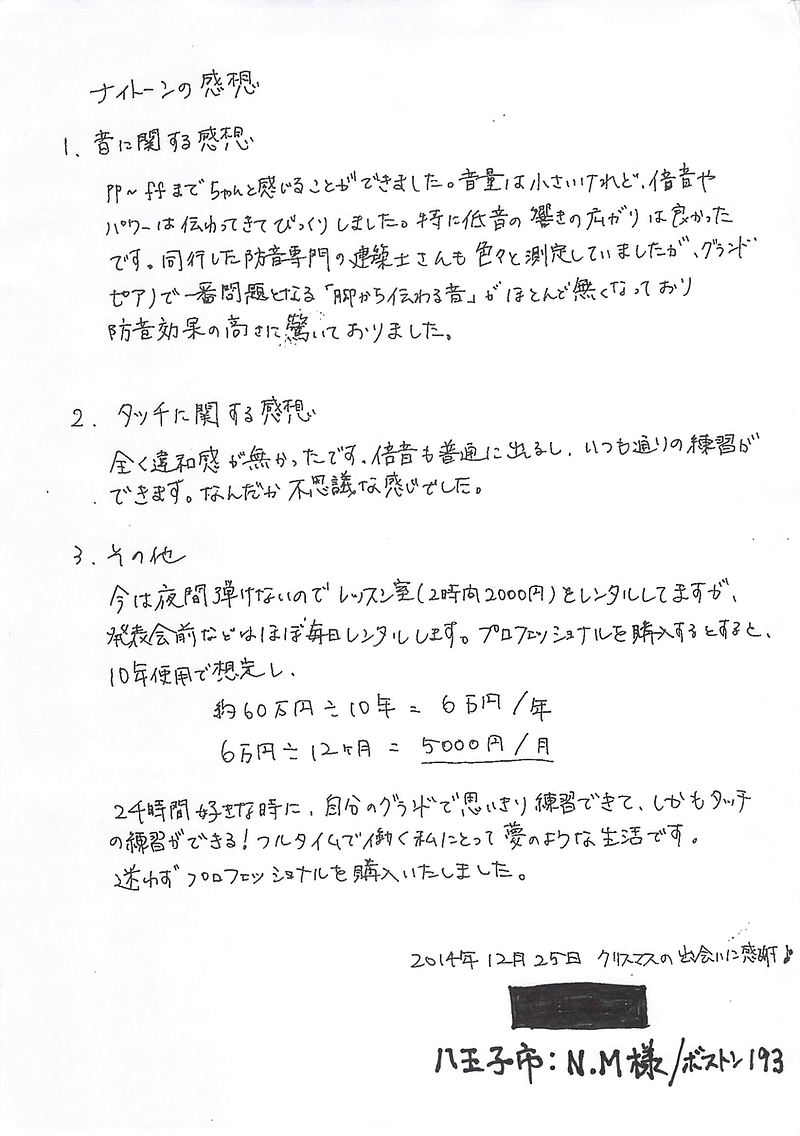 ナイトーンの感想
1. 音に関する感想
PP~ffまでちゃんと感じることができました。音量は小さいけれど、倍音や
パワーは伝わってきてびっくりしました。特に低音の響きの広がりは良かった
です。同行した防音専門の建築士さんも色々と測定していましたが、グランド
ピアノで一番問題となる「脚から伝わる音」がほとんど無くなっており
防音効果の高さに驚いておりました。
2. タッチに関する感想
全く違和感が無かったです。倍音も普通に出るし、いつも通りの練習が
できます。なんだか不思議な感じでした。
3. その他
今は夜間弾けないのでレッスン室(2時間2000円)をレンタルしてますが、
発表会前などはほぼ毎日レンタルします。プロフェッショナルを購入するとすると、
10年使用で想定し、
約60万円÷10年=6万円/年
6万円÷12ヶ月=5000円/月
24時間好きな時に、自分のグランドで思いきり練習できて、しかもタッチ
の練習ができる!フルタイムで働く私にとって夢のような生活です。
迷わずプロフェッショナルを購入いたしました。
2014年12月25日 クリスマスの出会いに感謝♪
八王子市:N.M様/ボストン193